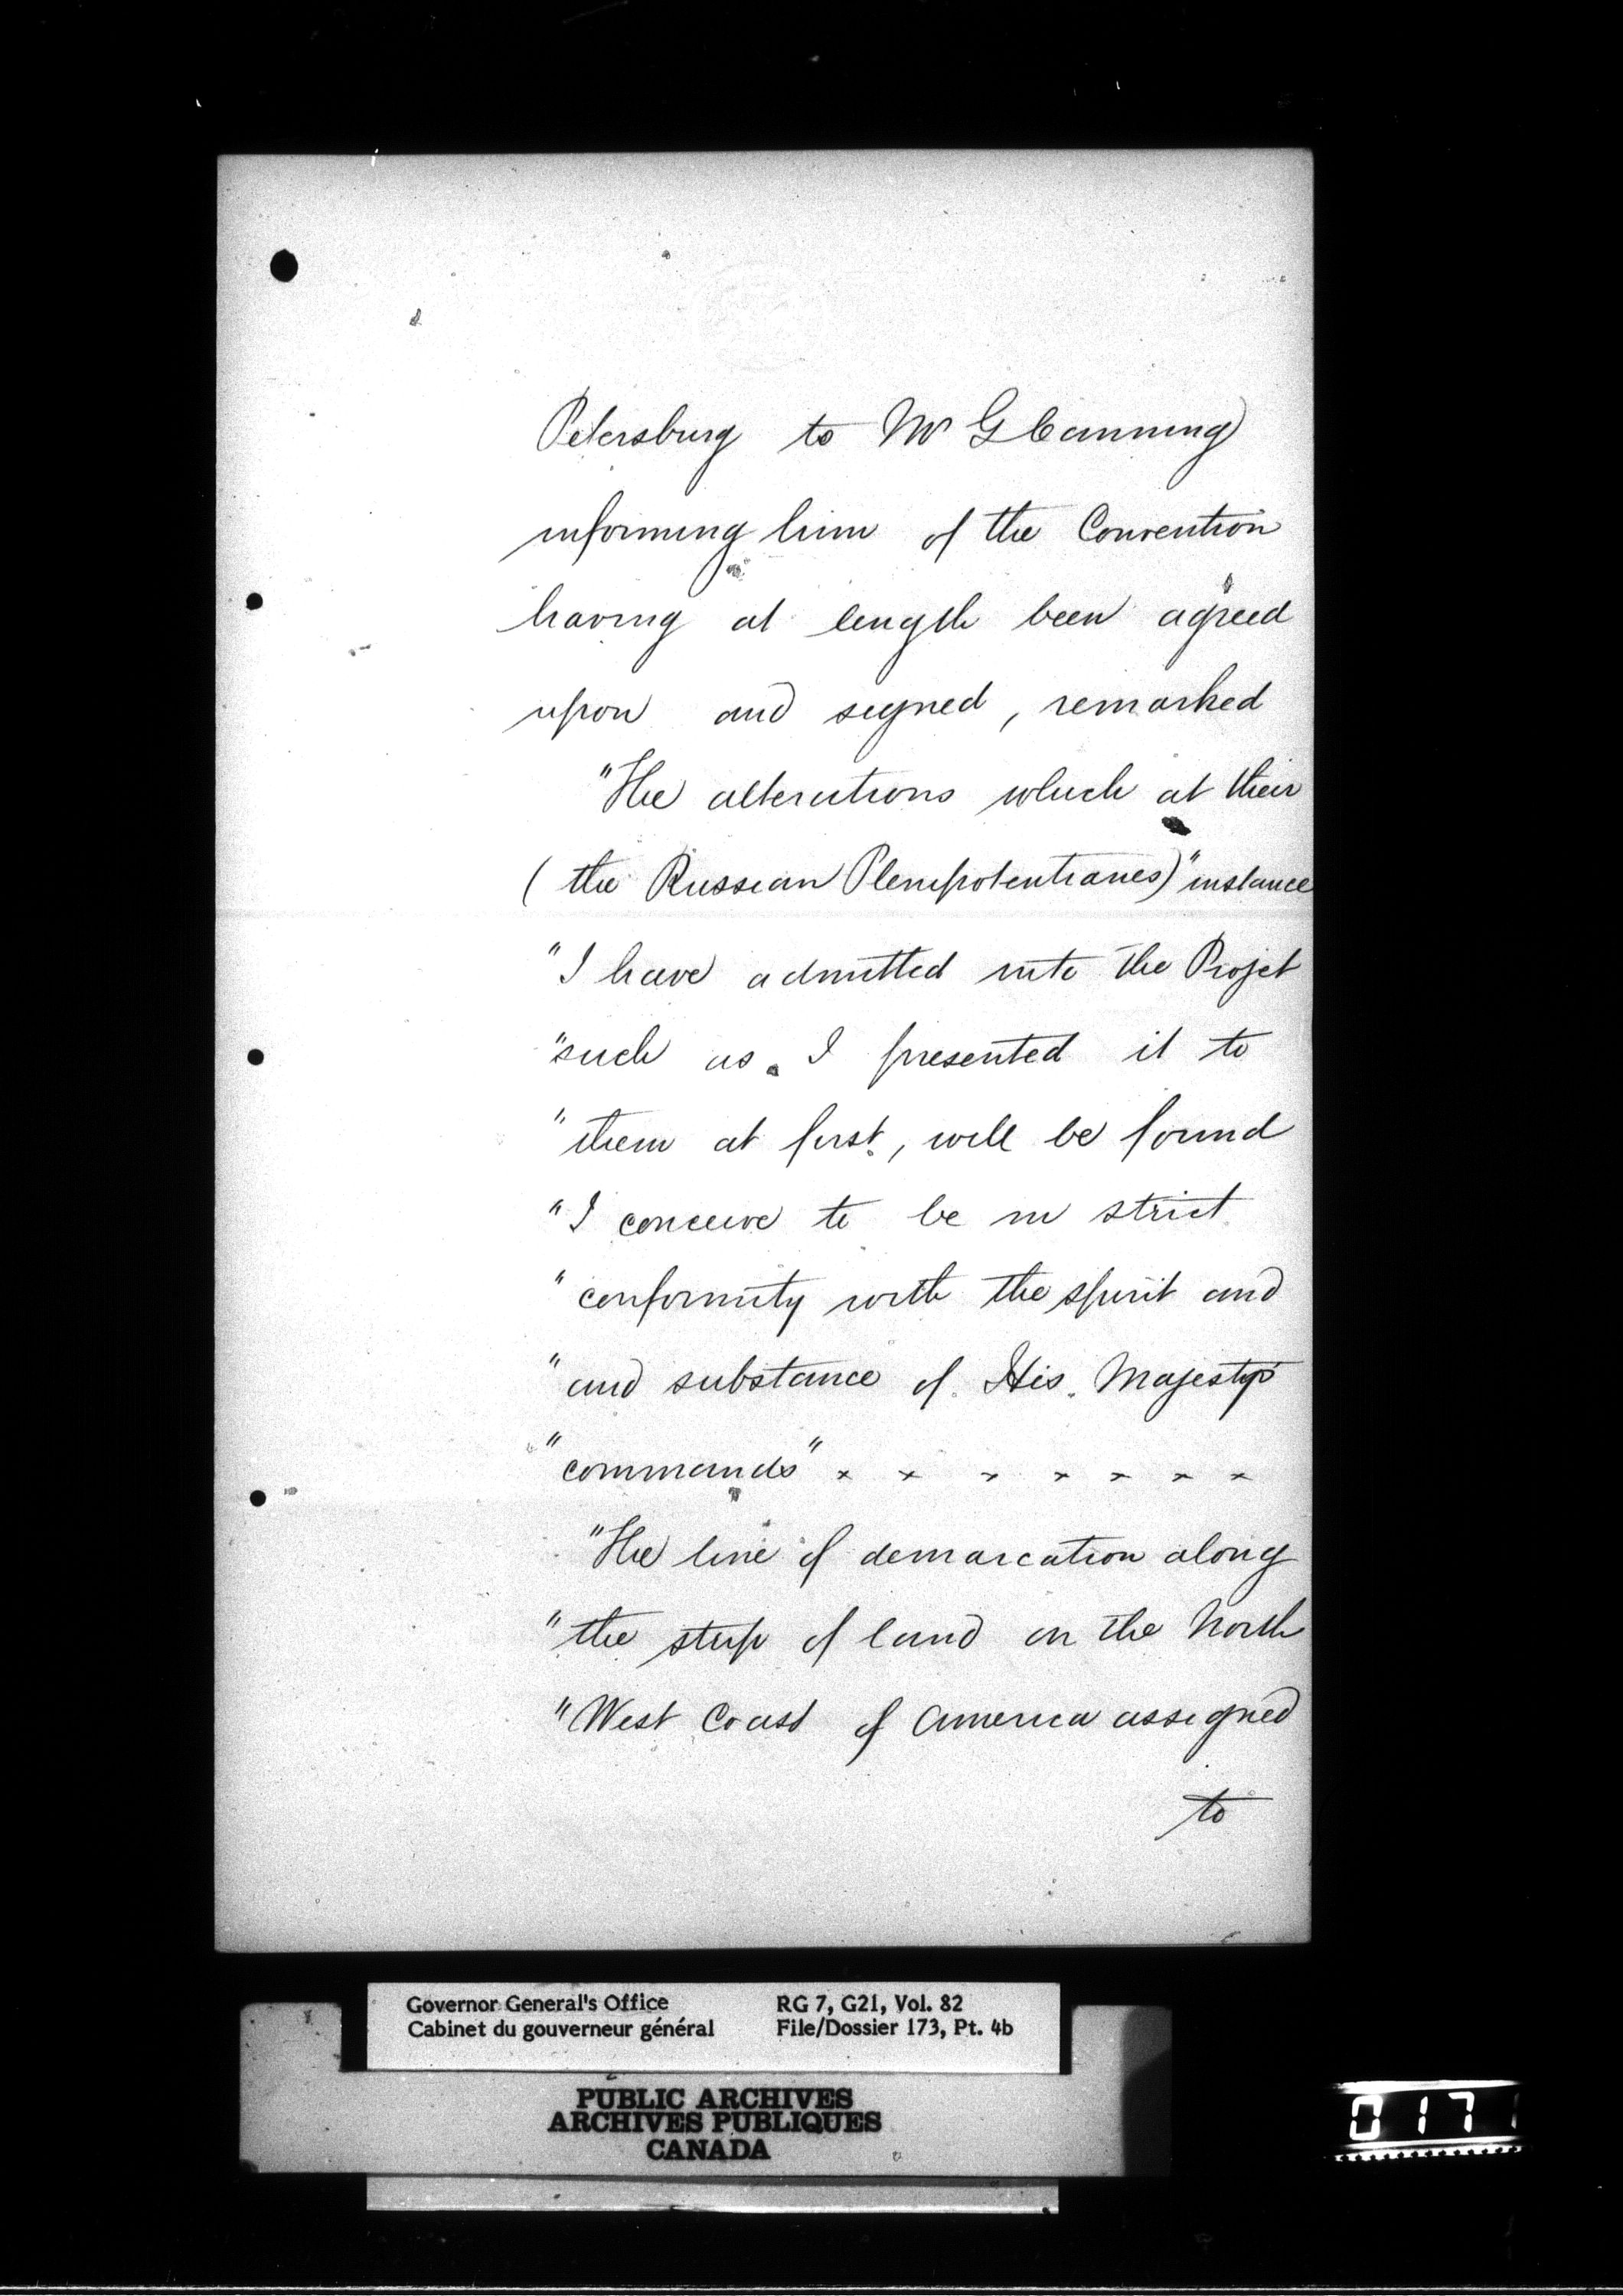 Petersburg to Mr G Canning
informing him of the Convention
having at length been agreed
upon and signed, remarked
"The alterations which at their
(the Russian Plenipotentiaries)" instance
"I have admitted into the Projet
"such as I presented it to
"them at first, will be found
"I conceive to be in strict
"conformity with the spirit and
"and substance of His Majesty's
"commands" x x x x x x x
"The line of demarcation along
"the strip of land on the North
"West Coast of America assigned
to
Governor General's Office
Cabinet du gouverneur général
RG 7, G21, Vol. 82
File/Dossier 173, Pt. 4b
PUBLIC ARCHIVES
ARCHIVES PUBLIQUES
CANADA
017